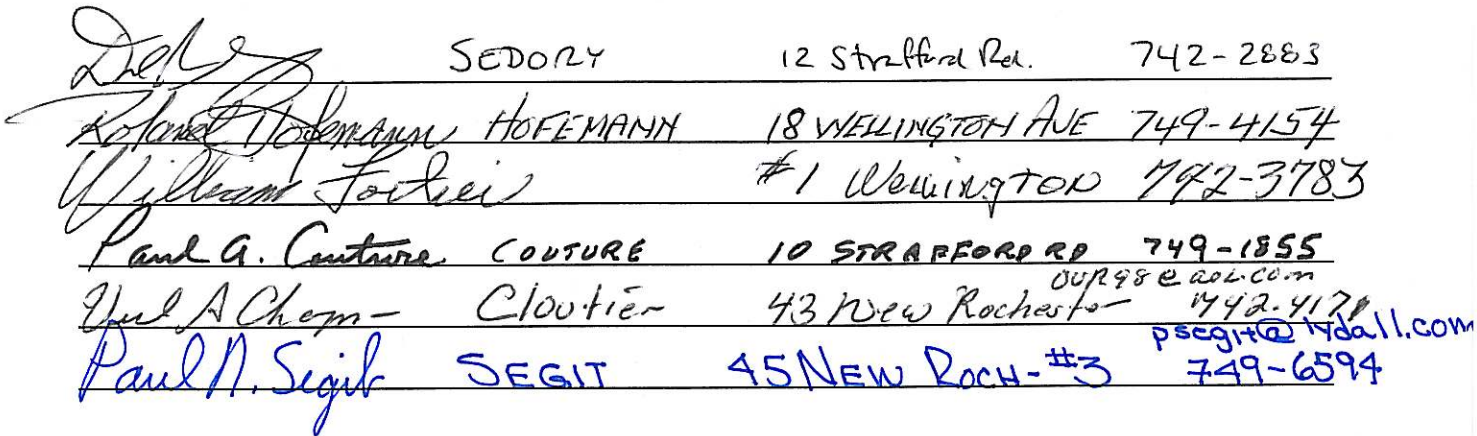 SEDORY 12 Strafford Rd. 742-2883
Roland Hofemann HOFEMANN 18 WELLINGTON AVE 749-4154
William Fortier #1 Wellington 742-3783
Paul A. Couture COUTURE 10 STRAFFORD RD 749-1855
OUR98@aol.com
Cloutier 43 New Rochester
psegit@lydall.com
Paul N. Segit SEGIT 45 NEW ROCH-#3 749-6594